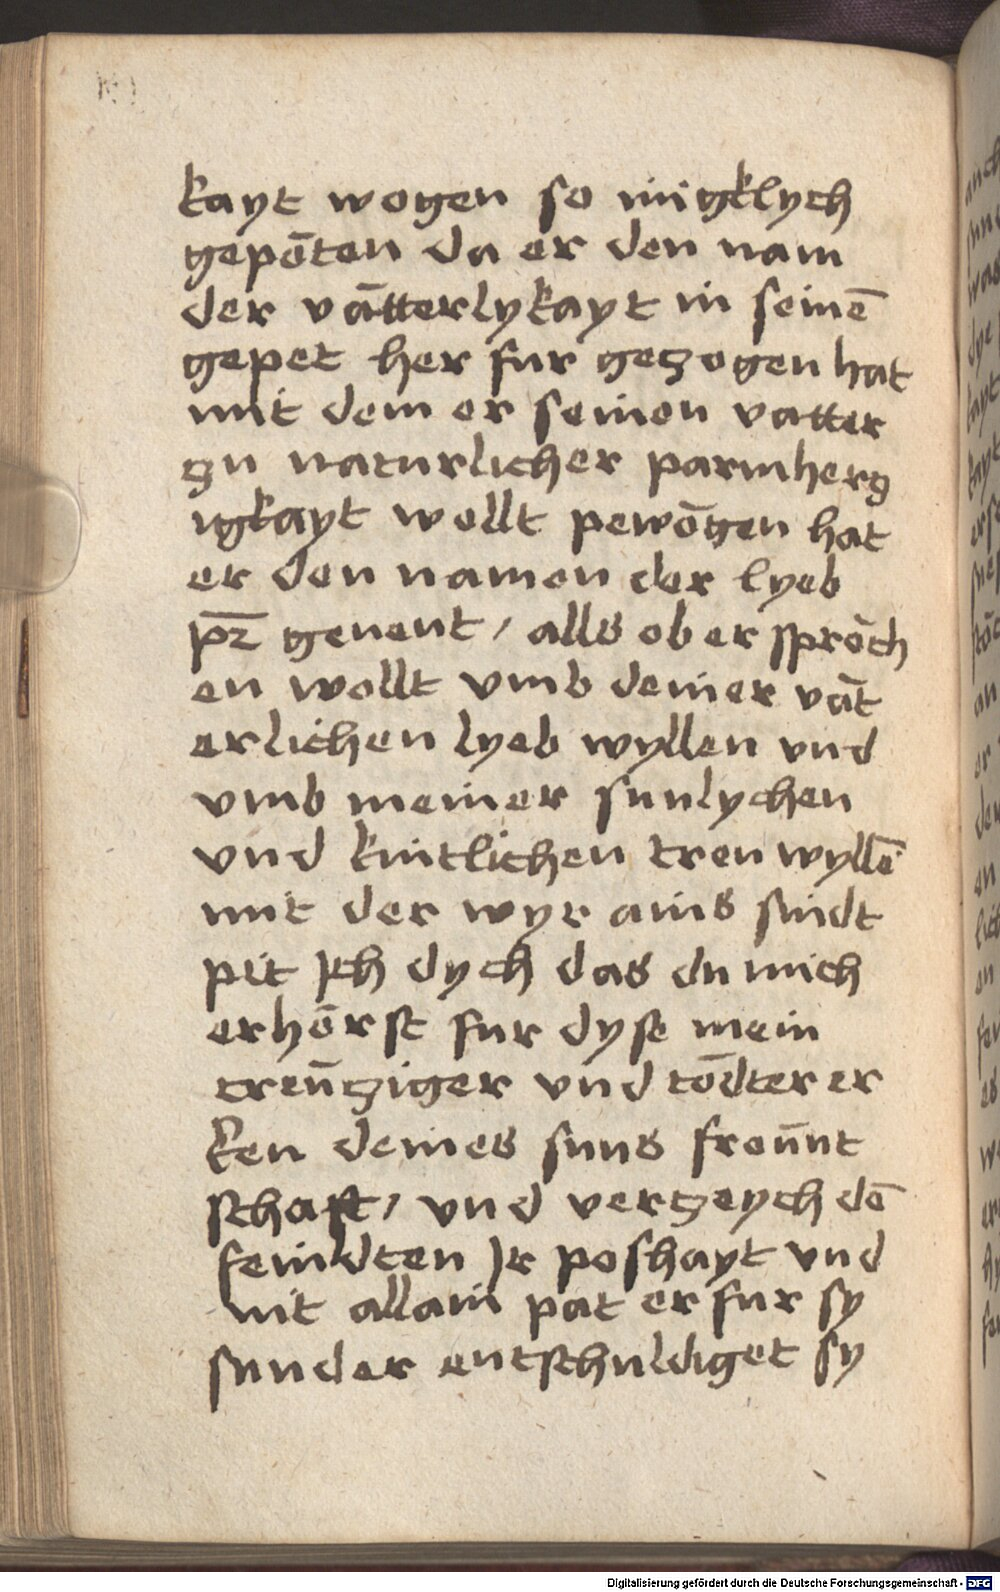 kayt wogen so inigklych
gepōten da er den nam
der vātterlykayt in seinē
gepet her fur gezogen hat
mit dem er seinen vatter
zu naturlicher parmherz
igkayt wollt pewōgen hat
er den namen der lyeb
genent / alls ob er sprōch
en wollt vmb deiner vāt
erlichen lyeb wyllen vnd
vmb meiner sunlychen
vnd kintlichen treu wyllē
mit der wyr ains sindt
pit Jch dych das du mich
erhōrst fur dyse mein
creūtziger vnd tōdter er
ken deines suns freūnt
schaft / vnd verzeych dē
feindten Jr poshayt vnd
nit allain pat er fur sy
sunder entschuldiget sy
Digitalisierung gefördert durch die Deutsche Forschungsgemeinschaft - DFG